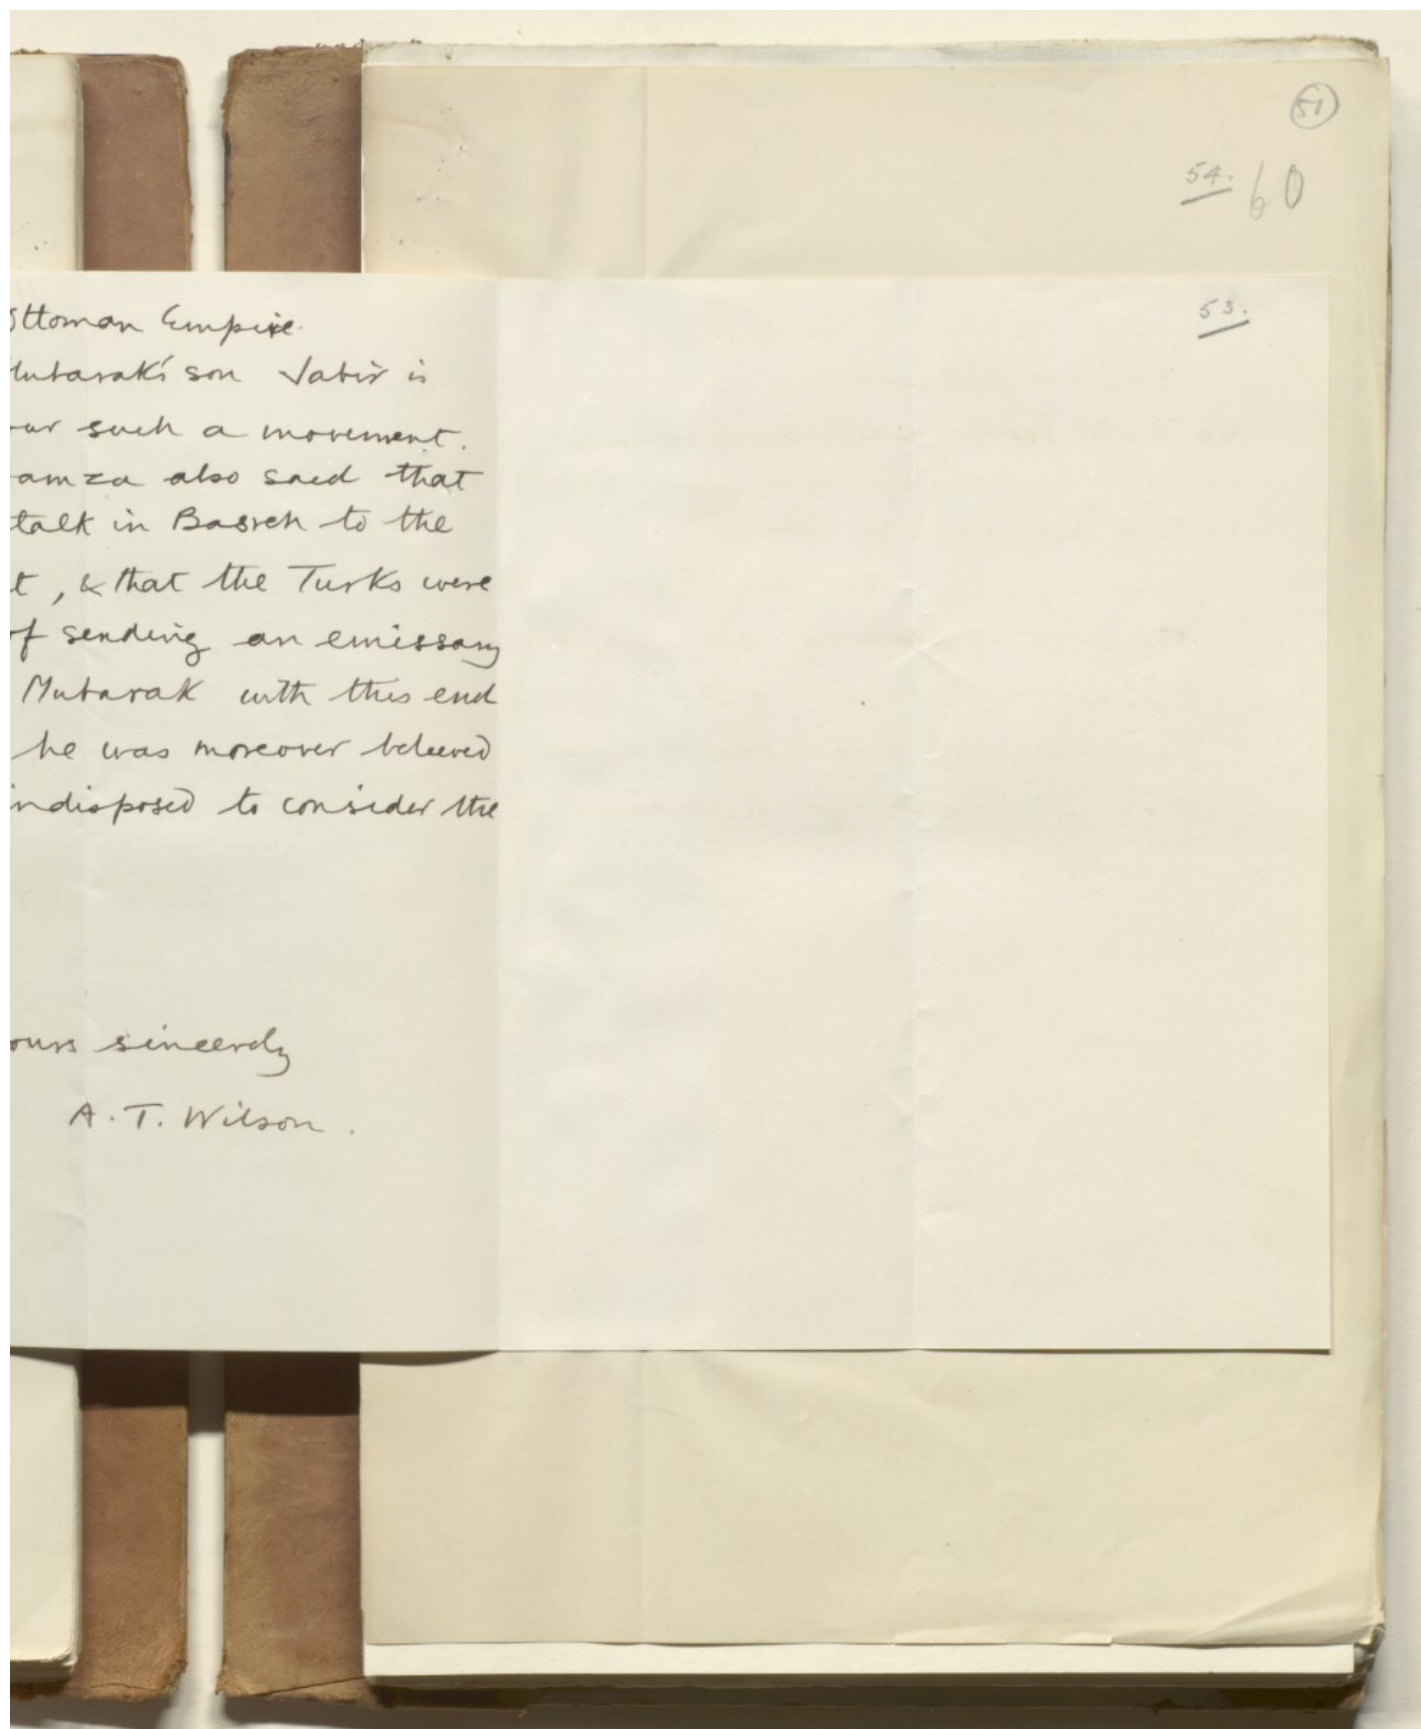 51
54. 60
53.
ttoman Empire.
ubarak's son Jabir is
our such a movement.
amza also said that
talk in Basreh to the
t, & that the Turks were
of sending an emissary
Mubarak with this end
he was moreover believed
indisposed to consider the
ours sincerely
A. T. Wilson.